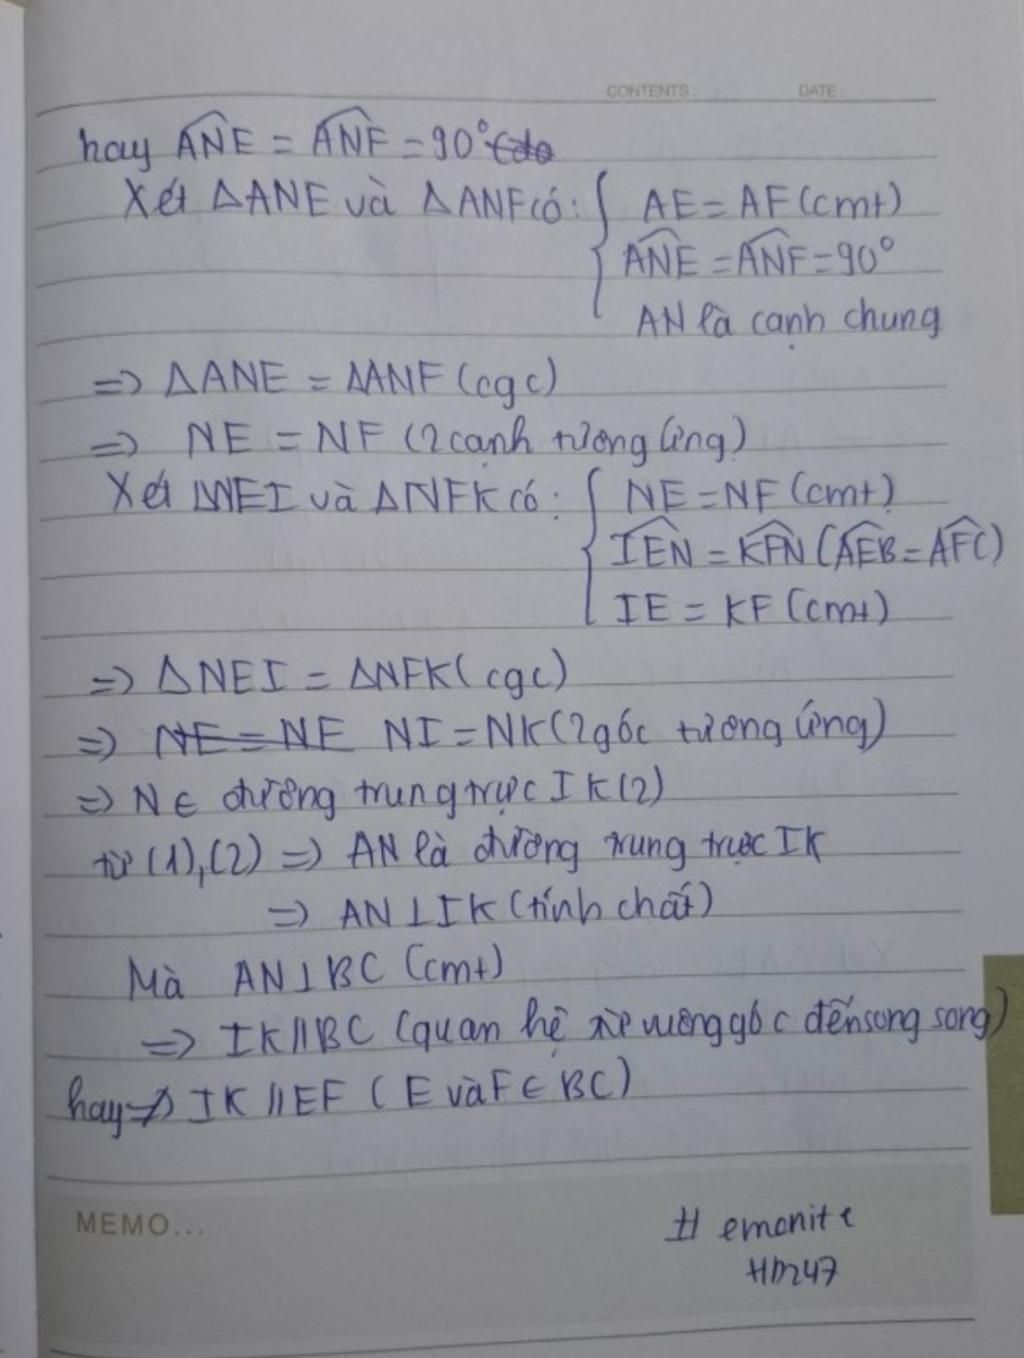 CONTENTS: DATE:
hay ANE = ANF = 90°
Xét ΔANE và ΔANF có: { AE = AF (cmt)
ANE = ANF = 90°
AN là cạnh chung
=> ΔANE = ΔANF (cgc)
=> NE = NF (2 cạnh tương ứng)
Xét ΔNEI và ΔNFK có: { NE = NF (cmt)
IEN = KFN (AEB = AFC)
IE = KF (cmt)
=> ΔNEI = ΔNFK (cgc)
=> NE = NE NI = NK (2 góc tương ứng)
=> N ∈ đường trung trực IK (2)
từ (1), (2) => AN là đường trung trực IK
=> AN ⊥ IK (tính chất)
Mà AN ⊥ BC (cmt)
=> IK // BC (quan hệ từ vuông góc đến song song)
hay => IK // EF (E và F ∈ BC)
MEMO...
# emonite
HD247